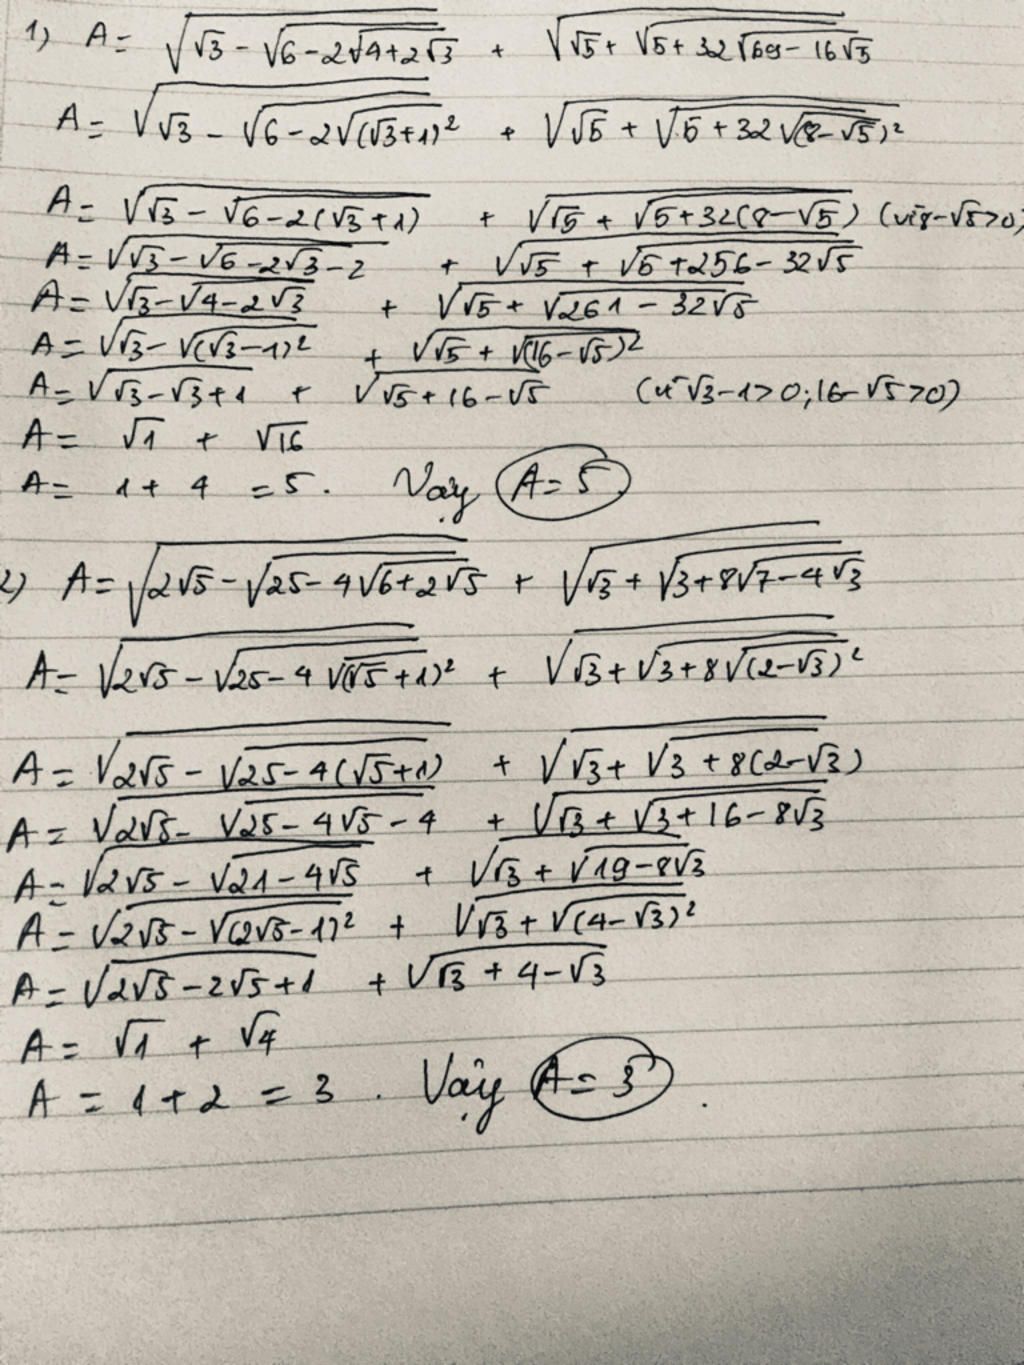 1) A = √(√3 − √(6 − 2√(4 + 2√3))) + √(√5 + √(5 + 32√(69 − 16√5)))
A = √(√3 − √(6 − 2√((√3 + 1)²))) + √(√5 + √(5 + 32√((8 − √5)²)))
A = √(√3 − √(6 − 2(√3 + 1))) + √(√5 + √(5 + 32(8 − √5))) (vì 8 − √5 > 0)
A = √(√3 − √(6 − 2√3 − 2)) + √(√5 + √(5 + 256 − 32√5))
A = √(√3 − √(4 − 2√3)) + √(√5 + √(261 − 32√5))
A = √(√3 − √((√3 − 1)²)) + √(√5 + √((16 − √5)²))
A = √(√3 − √3 + 1) + √(√5 + 16 − √5) (vì √3 − 1 > 0; 16 − √5 > 0)
A = √1 + √16
A = 1 + 4 = 5. Vậy A = 5
2) A = √(2√5 − √(25 − 4√(6 + 2√5))) + √(√3 + √(3 + 8√(7 − 4√3)))
A = √(2√5 − √(25 − 4√((√5 + 1)²))) + √(√3 + √(3 + 8√((2 − √3)²)))
A = √(2√5 − √(25 − 4(√5 + 1))) + √(√3 + √(3 + 8(2 − √3)))
A = √(2√5 − √(25 − 4√5 − 4)) + √(√3 + √(3 + 16 − 8√3))
A = √(2√5 − √(21 − 4√5)) + √(√3 + √(19 − 8√3))
A = √(2√5 − √((2√5 − 1)²)) + √(√3 + √((4 − √3)²))
A = √(2√5 − 2√5 + 1) + √(√3 + 4 − √3)
A = √1 + √4
A = 1 + 2 = 3. Vậy A = 3.